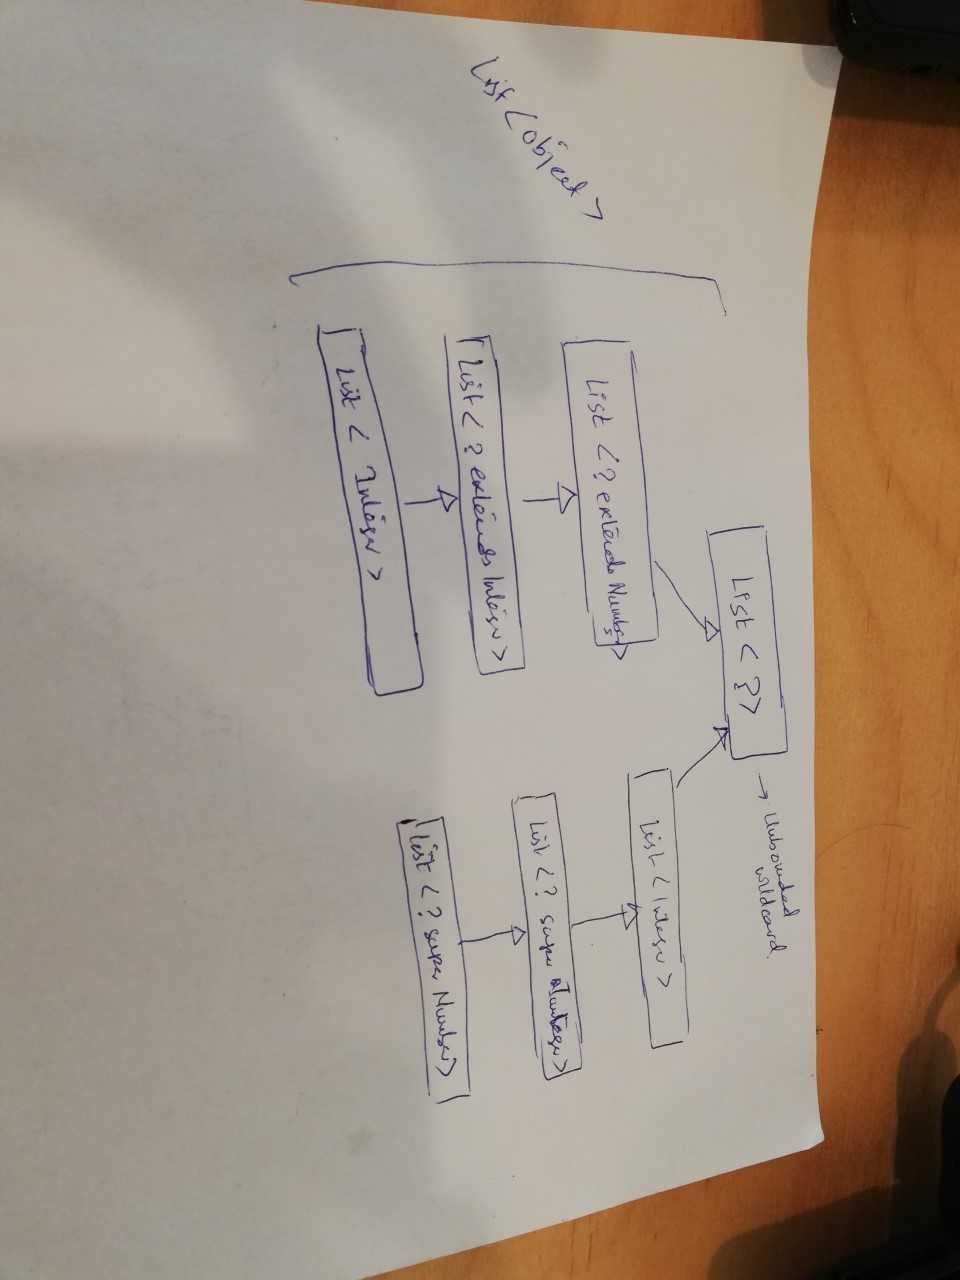 List <?>
→ Unbounded
wildcard.
List <? extends Number>
List <? extends Integer>
List < Integer>
List < Integer>
List <? super Integer>
List <? super Number>
List <Object>